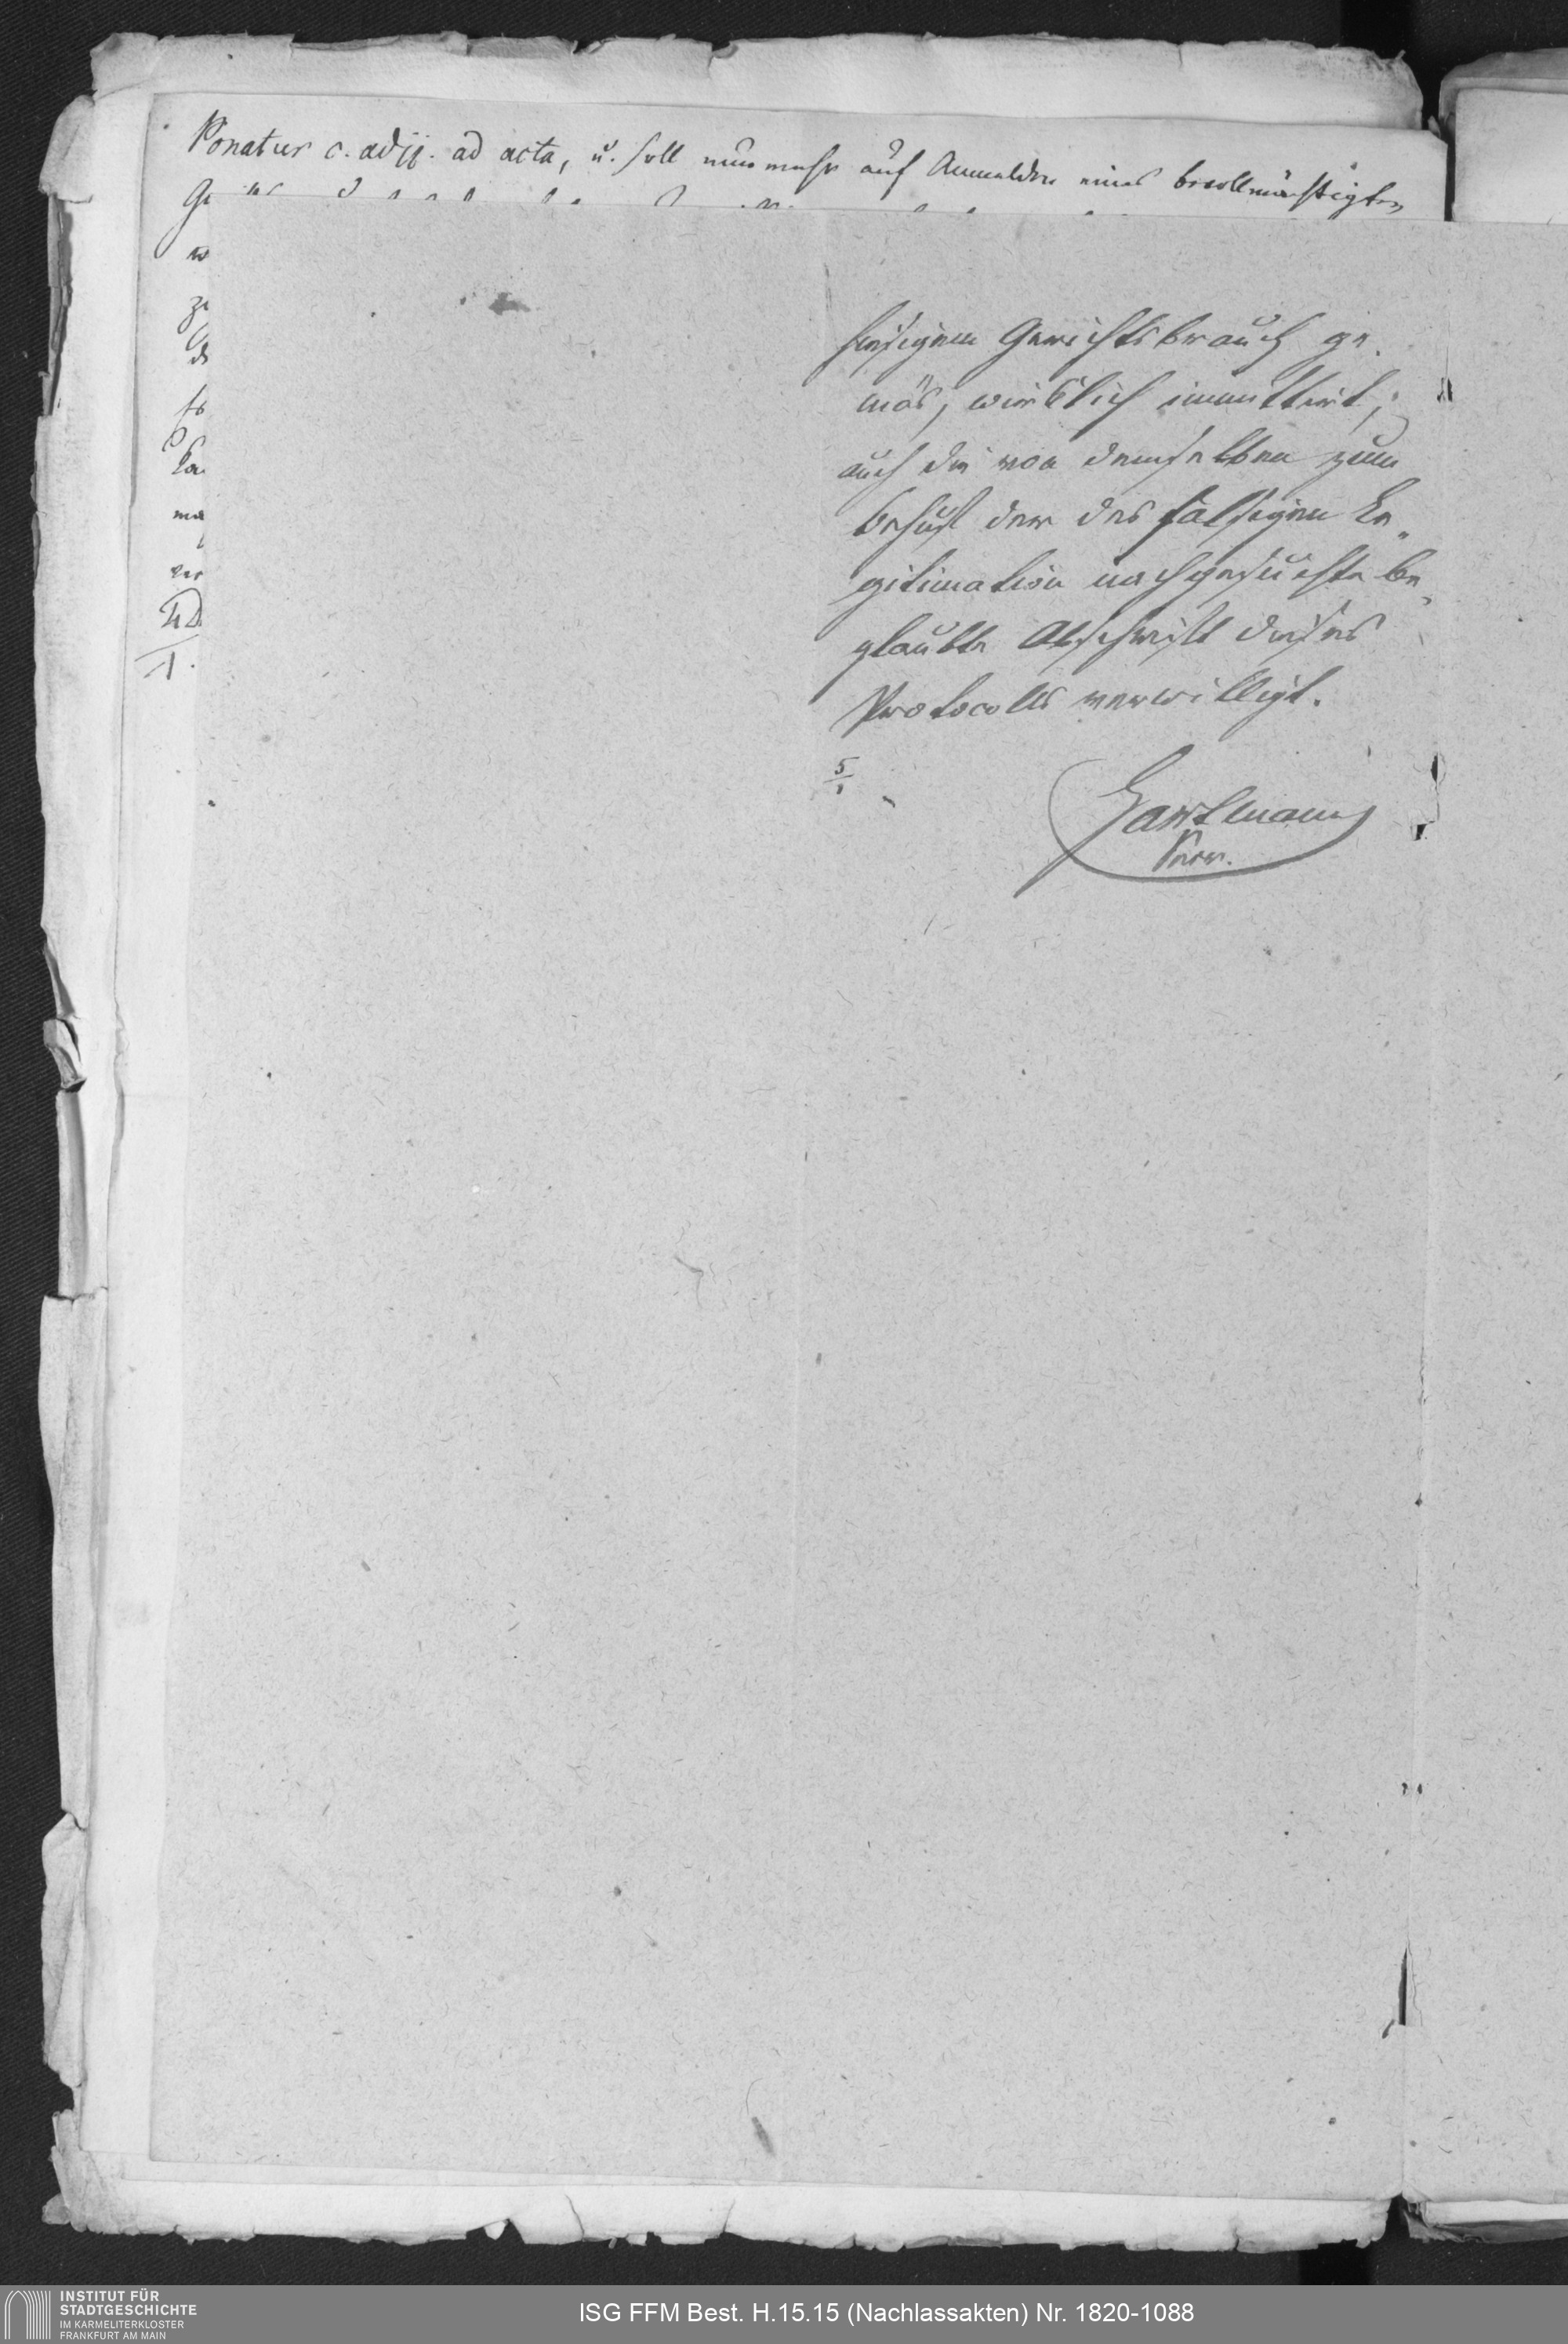 Ponatur c. adjj. ad acta, u. soll nunmehr auf Anmelden eines bevollmächtigten
hiesigem Gerichtsbrauch ge-
mäs, würklich immittirt;
auch die von demselben zum
behuf der des falsigen Le-
gitimation nachgesuchte be-
glaubte Abschrift dieses
Protocolls verwilligt.
5/1
Hartmann
INSTITUT FÜR
STADTGESCHICHTE
IM KARMELITERKLOSTER
FRANKFURT AM MAIN
ISG FFM Best. H.15.15 (Nachlassakten) Nr. 1820-1088